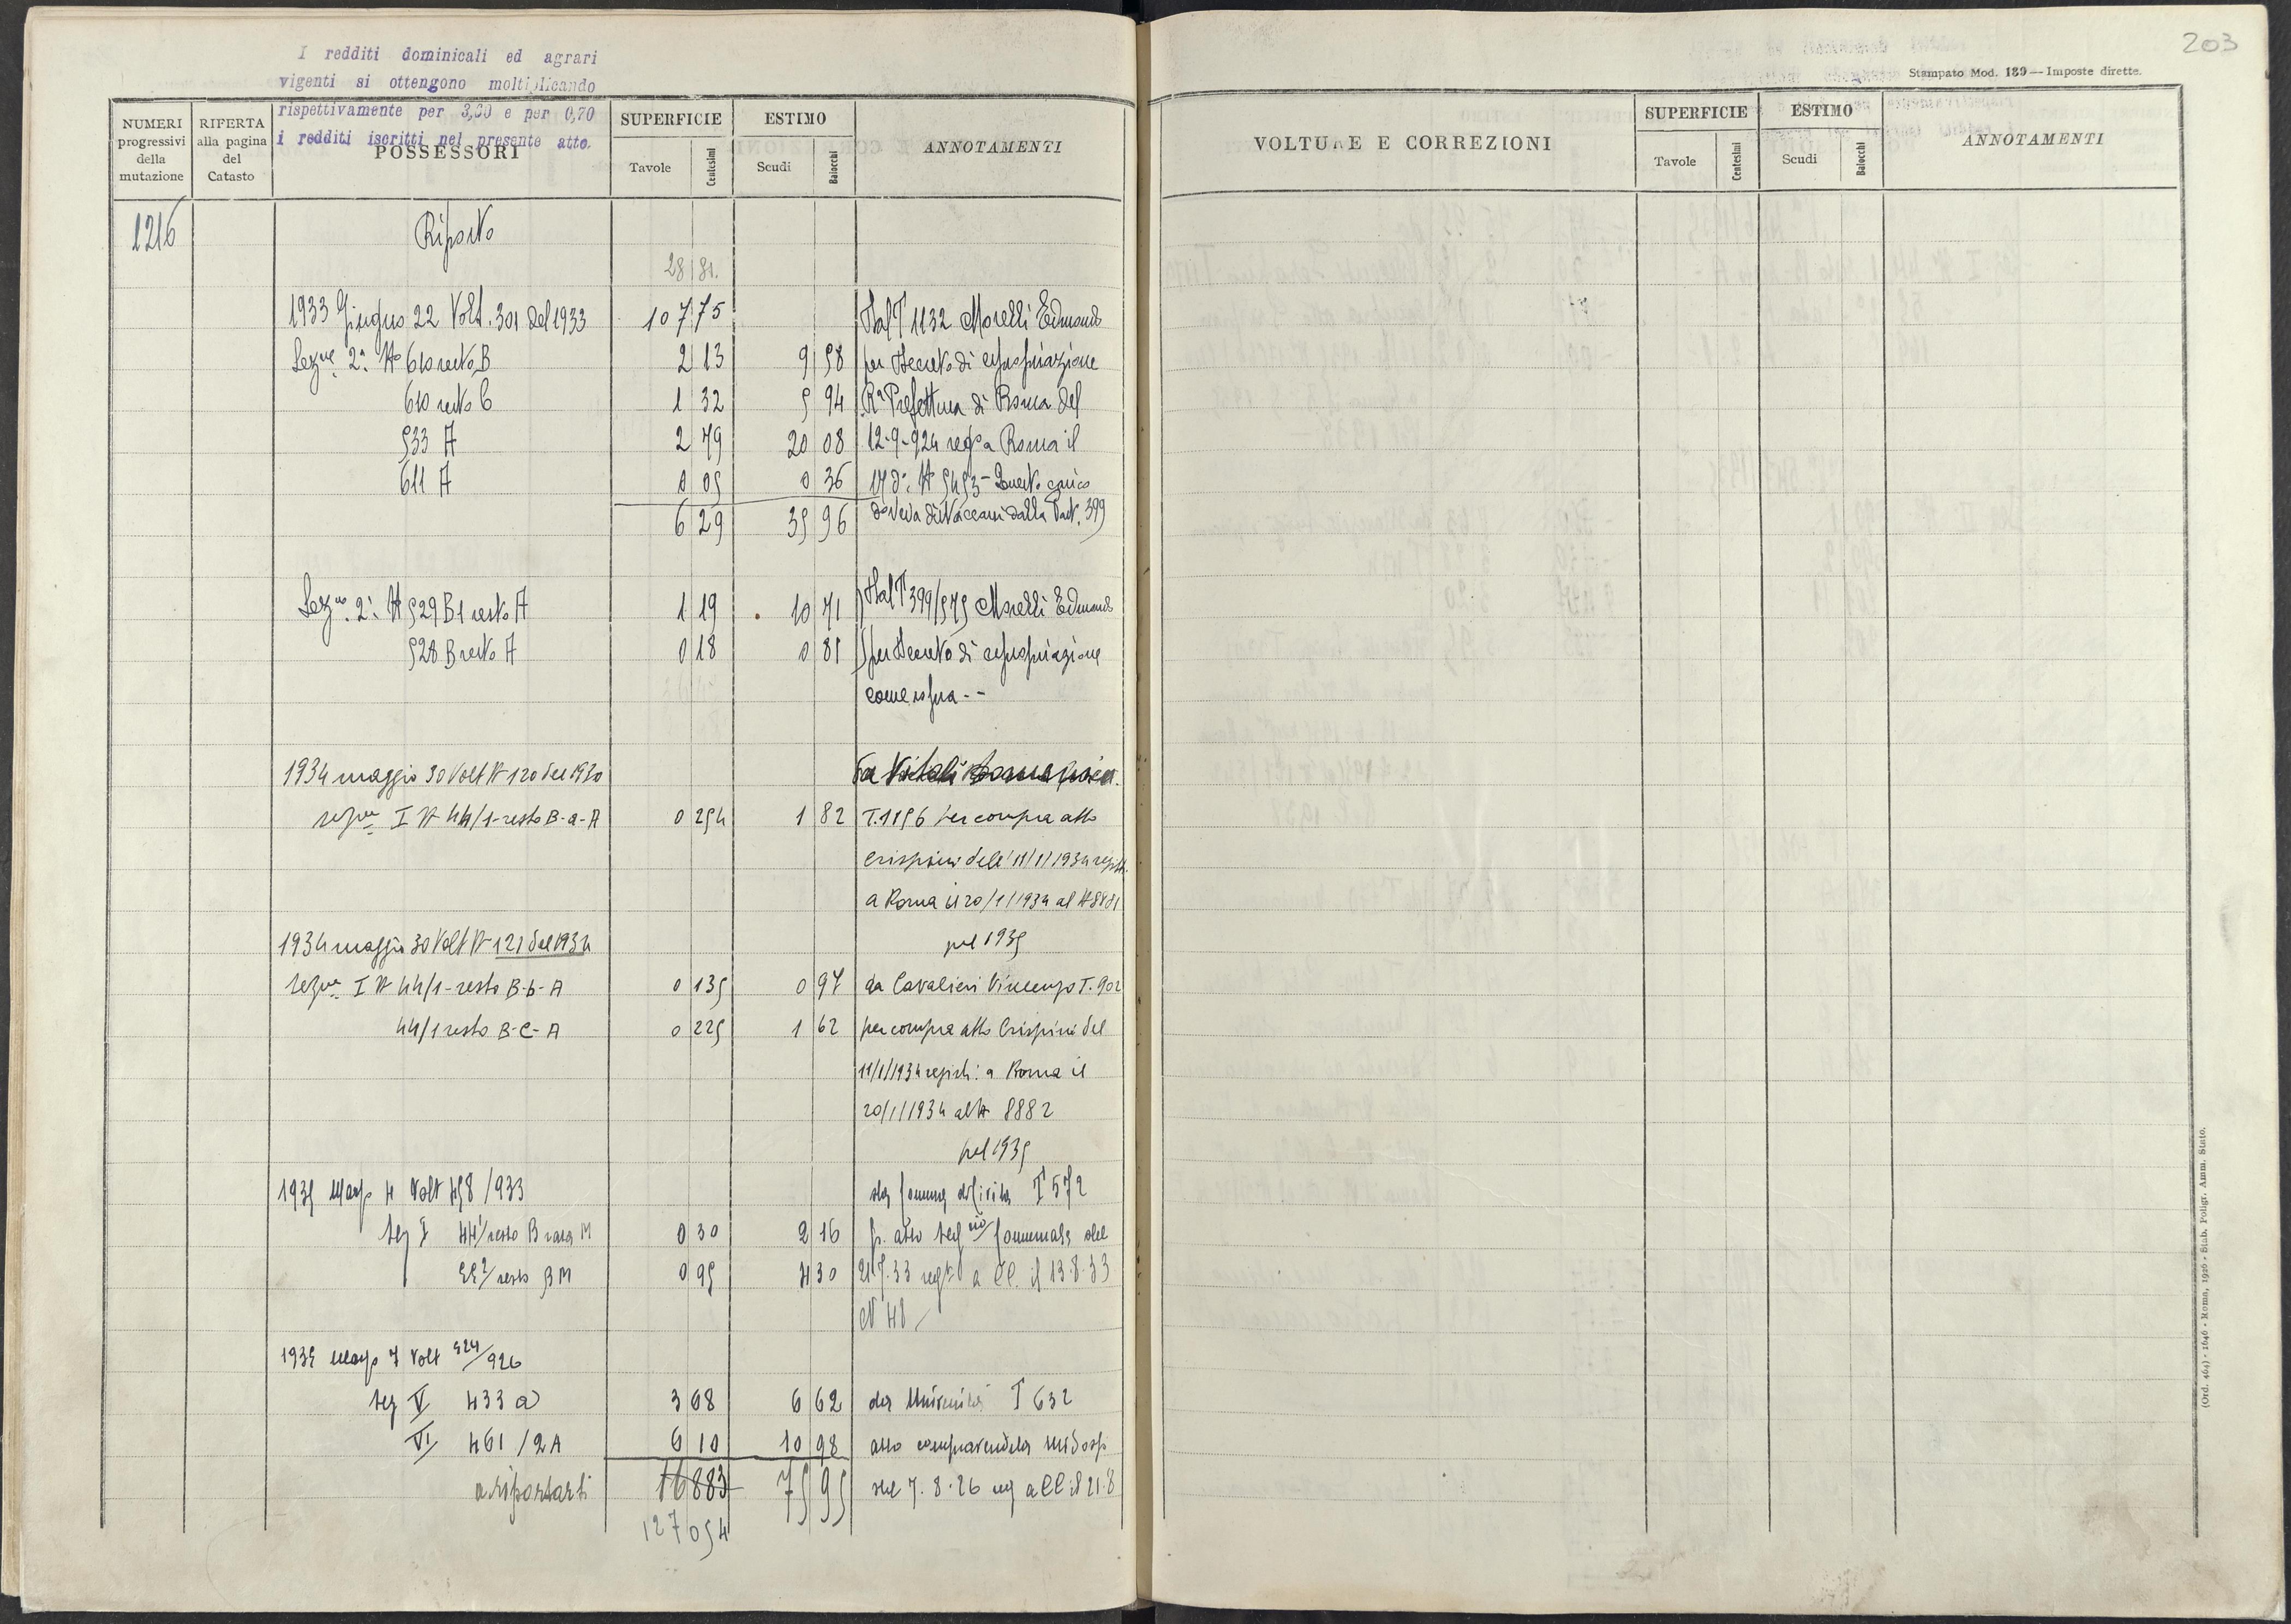 I redditi dominicali ed agrari
vigenti si ottengono moltiplicando
rispettivamente per 3,00 e per 0,70
i redditi iscritti nel presente atto.
NUMERI progressivi della mutazione
RIFERTA alla pagina del Catasto
POSSESSORI
SUPERFICIE
Tavole Centesimi
ESTIMO
Scudi Baiocchi
ANNOTAMENTI
1216 Riporto
28 81.
1933 Giugno 22 Volt. 301 del 1933 107 75 Dal T 1132 Morelli Edmondo
Sez.ne 2ª N° 610 resto B 2 13 9 58 per Decreto di espropriazione
610 resto C 1 32 5 94 Rª Prefettura di Roma del
533 A 2 79 20 08 12-9-924 reg° a Roma il
611 A 0 05 0 36 17 d° N° 5453 - Questo carico
6 29 35 96 doveva dalla Part. 399
Sez.ne 2ª N° 529 B1 resto A 1 19 10 71 Dal T 399/575 Morelli Edmondo
528 B resto A 0 18 0 81 per Decreto di espropriazione
come sopra --
1934 maggio 30 Volt N 120 del 1930 Da Vitali
sezne I N 44/1-resto B-a-A 0 254 1 82 T.1156 per compra atto
Crispini dell'11/1/1934 registr.
a Roma il 20/1/1934 al N 8881
pel 1935
1934 maggio 30 Volt N 121 del 1934
sezne I N 44/1-resto B-b-A 0 135 0 97 da Cavalieri Vincenzo T. 902
44/1 resto B-C-A 0 225 1 62 per compra atto Crispini del
11/1/1934 registr: a Roma il
20/1/1934 al N 8882
pel 1935
1935 Magg 4 Volt 458/933 da T 572
Sez I 44 1/resto B M 0 30 2 16 p. atto del
2/resto B M 0 95 4 30 21.7.33 reg° a CC. il 13.8.33
N 48
1935 Magg 7 Volt 524/926
Sez V 433 a 3 68 6 62 da Università T 632
VI 461/2A 6 10 10 98 atto compravendita
a riportarsi 16 883 75 95 del 7.8.26 reg a CC il 21.8
127 054
203
Stampato Mod. 189 — Imposte dirette.
VOLTURE E CORREZIONI
SUPERFICIE
Tavole Centesimi
ESTIMO
Scudi Baiocchi
ANNOTAMENTI
(Ord. 464) - 1646 - Roma, 1926 - Stab. Poligr. Amm. Stato.